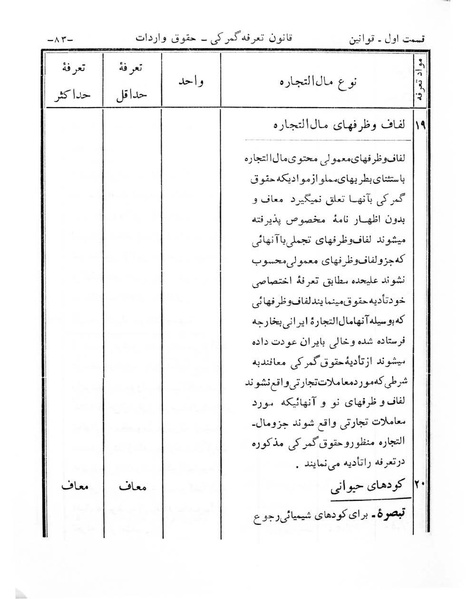 قسمت اول ـ قوانین
قانون تعرفه گمرکی ـ حقوق واردات
ـ۸۳ـ
مواد تعرفه
نوع مال‌التجاره
واحد
تعرفهٔ حداقل
تعرفهٔ حداکثر
۱۹ لفاف وظرفهای مال‌التجاره
لفاف وظرفهای معمولی محتوی مال‌التجاره
باستثنای بطریهای مملو از موادیکه حقوق
گمرکی بآنها تعلق نمیگیرد معاف و
بدون اظهار نامهٔ مخصوص پذیرفته
میشوند لفاف وظرفهای تجملی یا آنهائی
که جزو لفاف وظرفهای معمولی محسوب
نشوند علیحده مطابق تعرفهٔ اختصاصی
خود تأدیه حقوق مینمایند لفاف وظرفهائی
که بوسیله آنها مال‌التجارهٔ ایرانی بخارجه
فرستاده شده وخالی بایران عودت داده
میشوند از تأدیهٔ حقوق گمرکی معافند به
شرطی که مورد معاملات تجارتی واقع نشوند
لفاف و ظرفهای نو و آنهائیکه مورد
معاملات تجارتی واقع شوند جزو مال‌ـ
التجاره منظور و حقوق گمرکی مذکوره
در تعرفه را تأدیه می نمایند .
۲۰ کودهای حیوانی معاف معاف
تبصرهٔ ـ برای کودهای شیمیائی رجوع